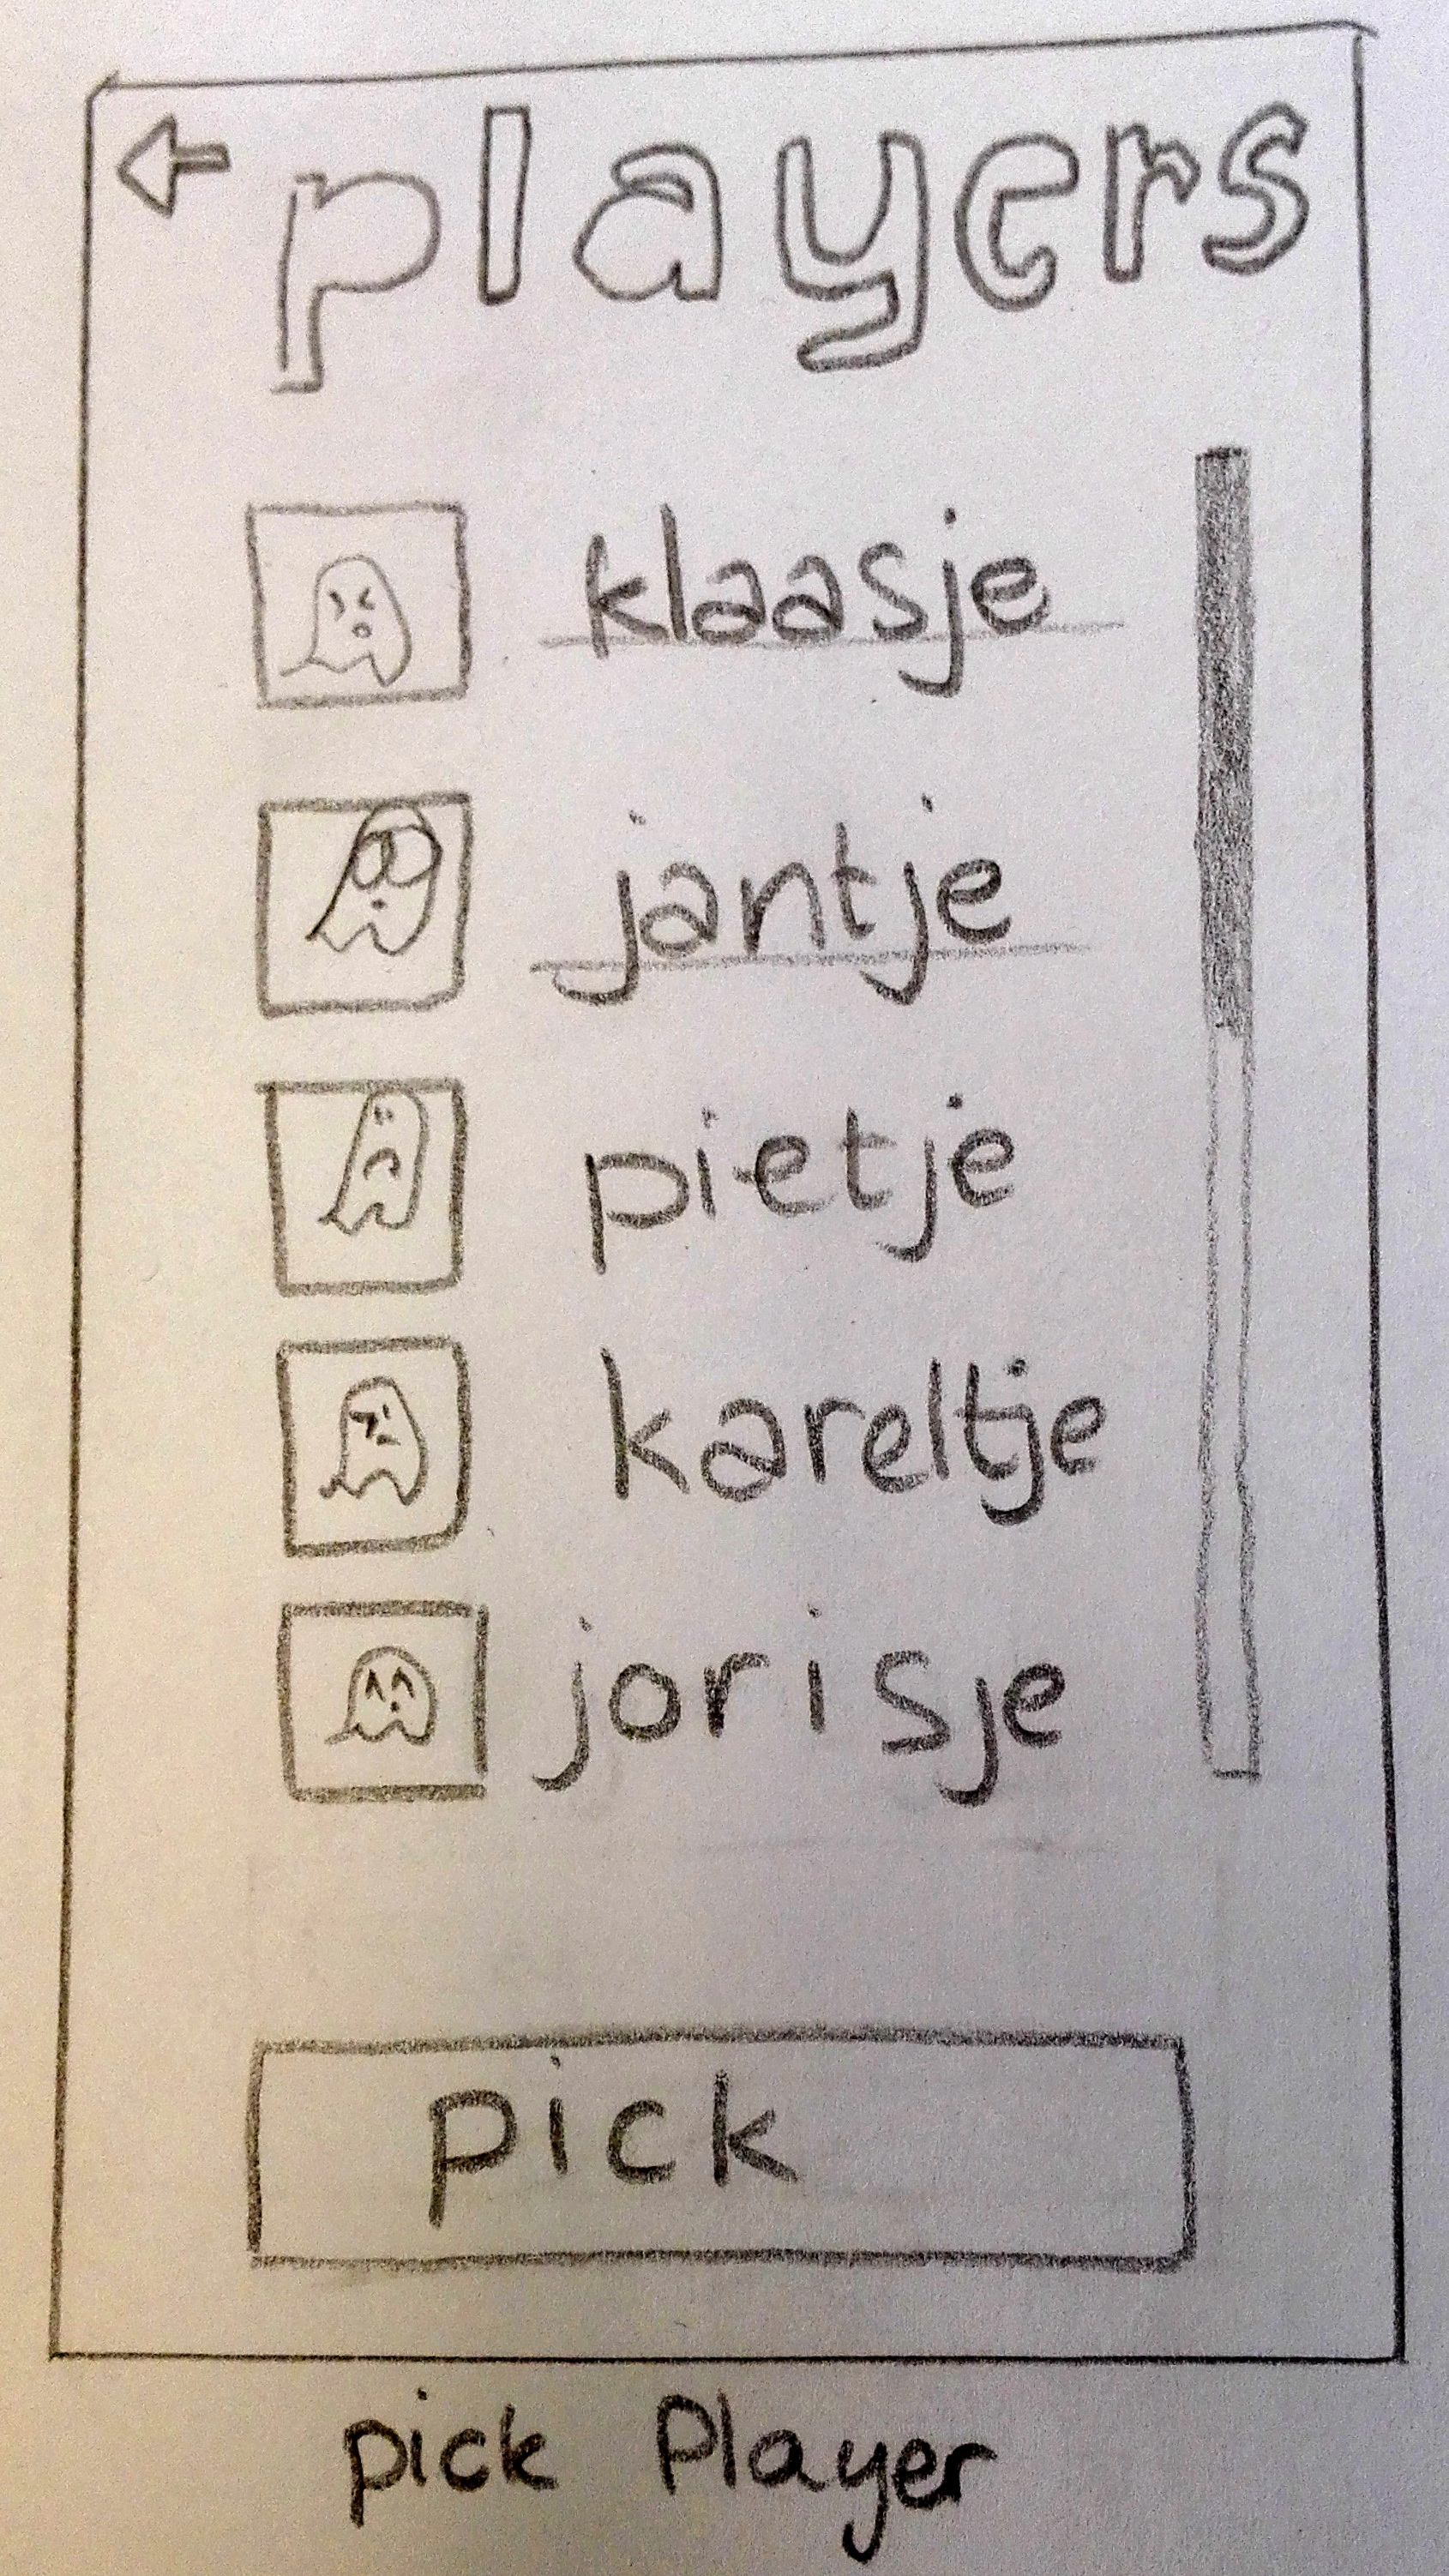 players
klaasje
jantje
pietje
kareltje
jorisje
pick
pick Player